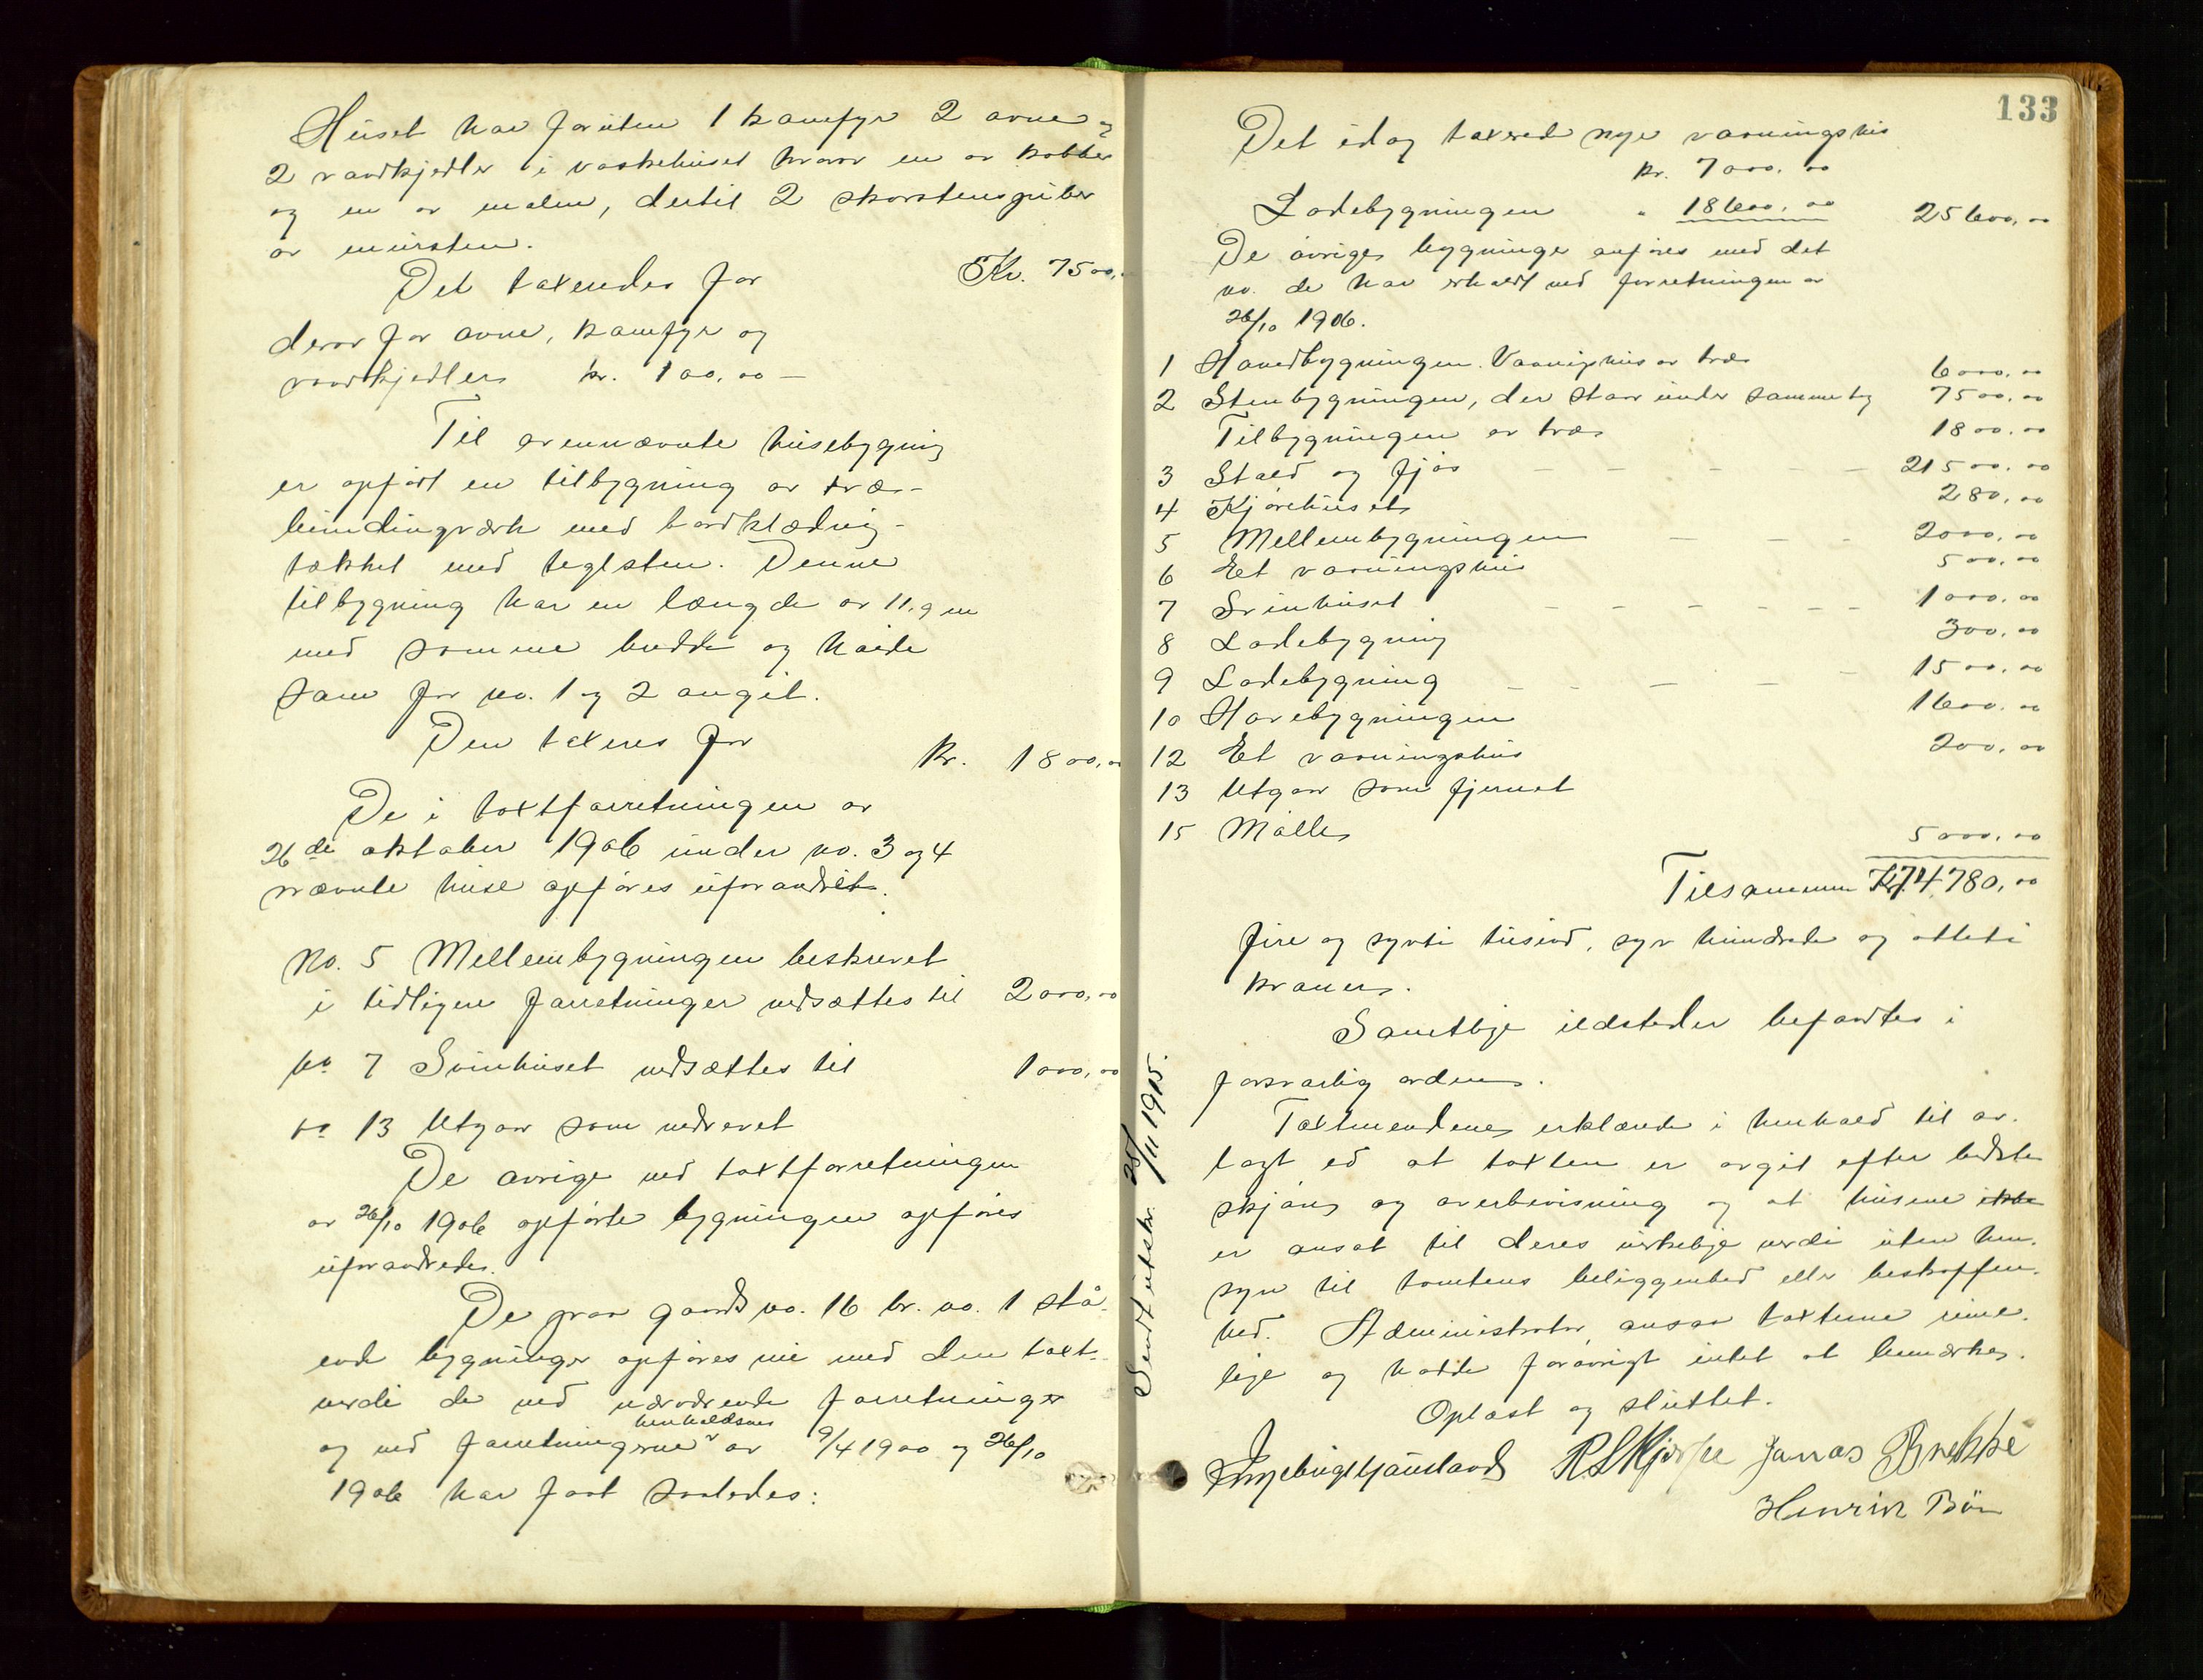 Huset har foruten 1 kamfyr 2 ovne og
2 vandkjedler i vaskehuset hvorav en av kobber
og en av malm, dertil 2 skorstensgruber
av mursten.
Det taxeredes for Kr. 7500,
derav for ovne, kamfyr og
vandkjedler kr. 100,00 —
Til ovennævnte husebygning
er opført en tilbygning av træ-
bindingverk med bordklædnig-
tækket med teglsten. Denne
tilbygning har en længde av 11,9 m
med samme bredde og høide
som for no. 1 og 2 angit.
Den taxeres for kr. 1800,00
De i taxtforretningen av
26de oktober 1906 under no. 3 og 4
nævnte huse opføres uforandret.
No. 5 Mellembygningen beskrevet
i tidligere forretninger nedsættes til 2000,00
No 7 Svinhuset nedsættes til 1000,00
No 13 Utgaar som nedrevet
De øvrige ved taxtforretningen
av 26/10 1906 opførte bygninger opføres
uforandrede.
De paa gaards no. 16 br. no. 1 stå-
ende bygninger opføres nu med den taxt-
verdi de ved nærværende forretninger
og ved forretningerne henholdsvis av 9/4 1900 og 26/10
1906 har faat saaledes:
133
Det idag taxered nye vaaningshus
kr. 7000,00
Ladebygningen " 18600,00 25600,00
De øvriges bygninger anføres med det
no. de har erholdt ved forretningen av
26/10 1906.
1 Hovedbygningen. Vaanighus av træ 6000,00
2 Stenbygningen, der staar under samme tag 7500,00
Tilbygningen av træ 1800,00
3 Stald og fjøs — — — — — 21500,00
4 Kjørehuset 280,00
5 Mellembygningen — — — 2000,00
6 Et vaaningshus 500,00
7 Svinhuset — — — — — — 1000,00
8 Ladebygning 300,00
9 Ladebygning — — — — — 1500,00
10 Havebygningen 1600,00
12 Et vaaningshus 200,00
13 Utgaar som fjernet
15 Mølle 5000,00
Tilsammen Kr. 74780,00
fire og sytti tusind, syv hundrede og otteti
kroner.
Samtlige ildsteder befandtes i
forsvarlig orden.
Taxtmendene erklærede i henhold til av-
lagt ed at taxten er avgit efter bedste
skjøn og overbevisning og at husene ikke
er ansat til deres virkelige verdi uten hen-
syn til tomtens beliggenhed eller beskaffen-
hed. Administrator ansaa taxterne rime-
lige og hadde forøvrigt intet at bemærke.
Oplæst og sluttet.
Jonas Brekke
Henrik Bø
Sendt utskr. 25/11 1915.